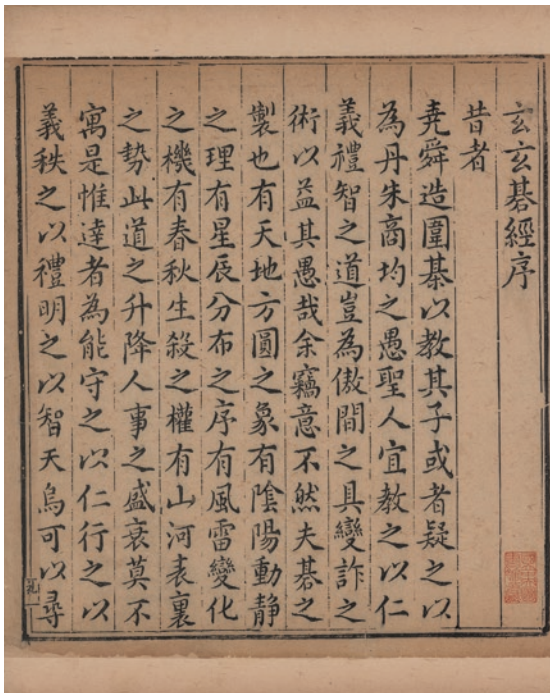 玄玄碁經序
昔者
堯舜造圍棊以教其子或者疑之以
為丹朱商均之愚聖人宜教之以仁
義禮智之道豈為傲閒之具變詐之
術以益其愚哉余竊意不然夫碁之
製也有天地方圓之象有陰陽動靜
之理有星辰分布之序有風雷變化
之機有春秋生殺之權有山河表裏
之勢此道之升降人事之盛衰莫不
寓是惟達者為能守之以仁行之以
義秩之以禮明之以智夫烏可以尋